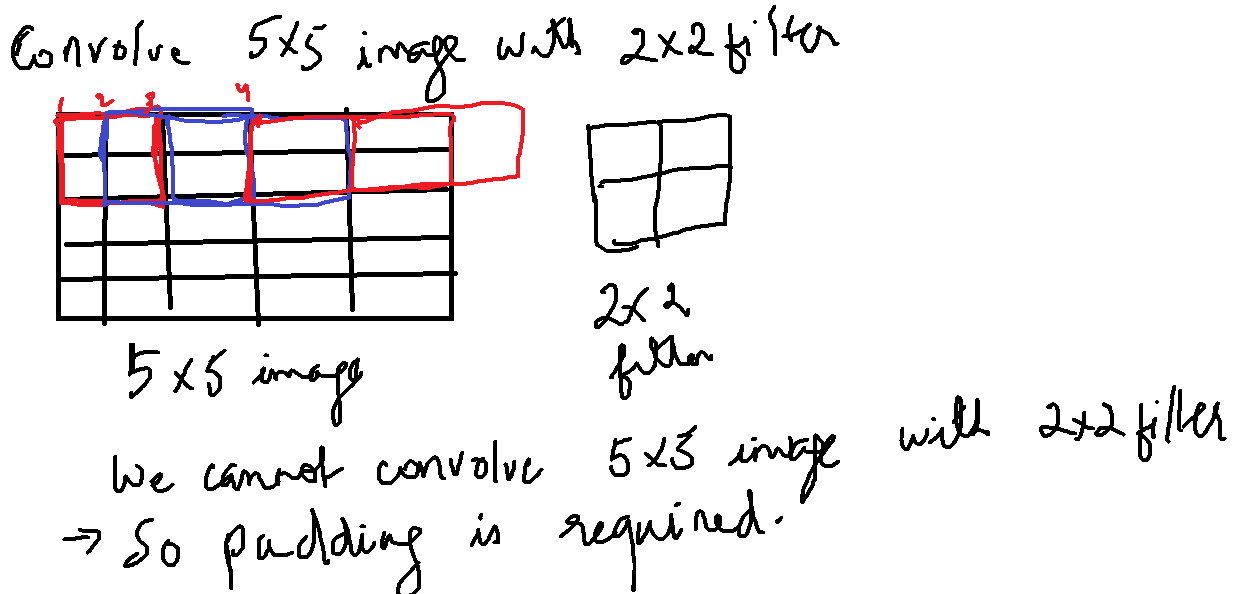 Convolve 5x5 image with 2x2 filter
1 2 3 4
5x5 image
2x2
filter
We cannot convolve 5x5 image with 2x2 filter
→ So padding is required.